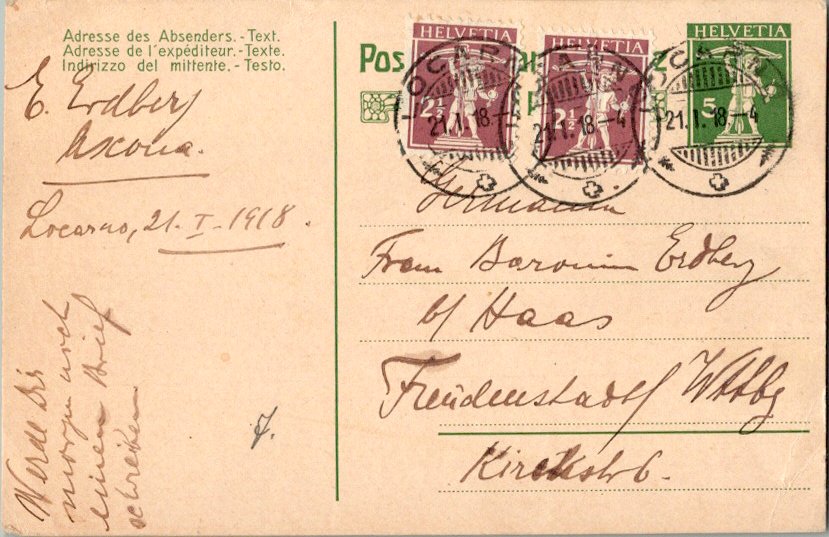 Adresse des Absenders.-Text.
Adresse de l'expéditeur.-Texte.
Indirizzo del mittente.-Testo.
E. Erdberg
Ascona.
Locarno, 21. I. 1918.
Werde Dir
morgen noch
einen Brief
schreiben.
7.
HELVETIA
2½
HELVETIA
2½
HELVETIA
5
LOCARNO
21.I.18.-4
21.I.18.-4
21.I.18.-4
Germania
Frau Baronin Erdberg
b/ Haas
Freudenstadt Wttbg
Kirchstr 6.